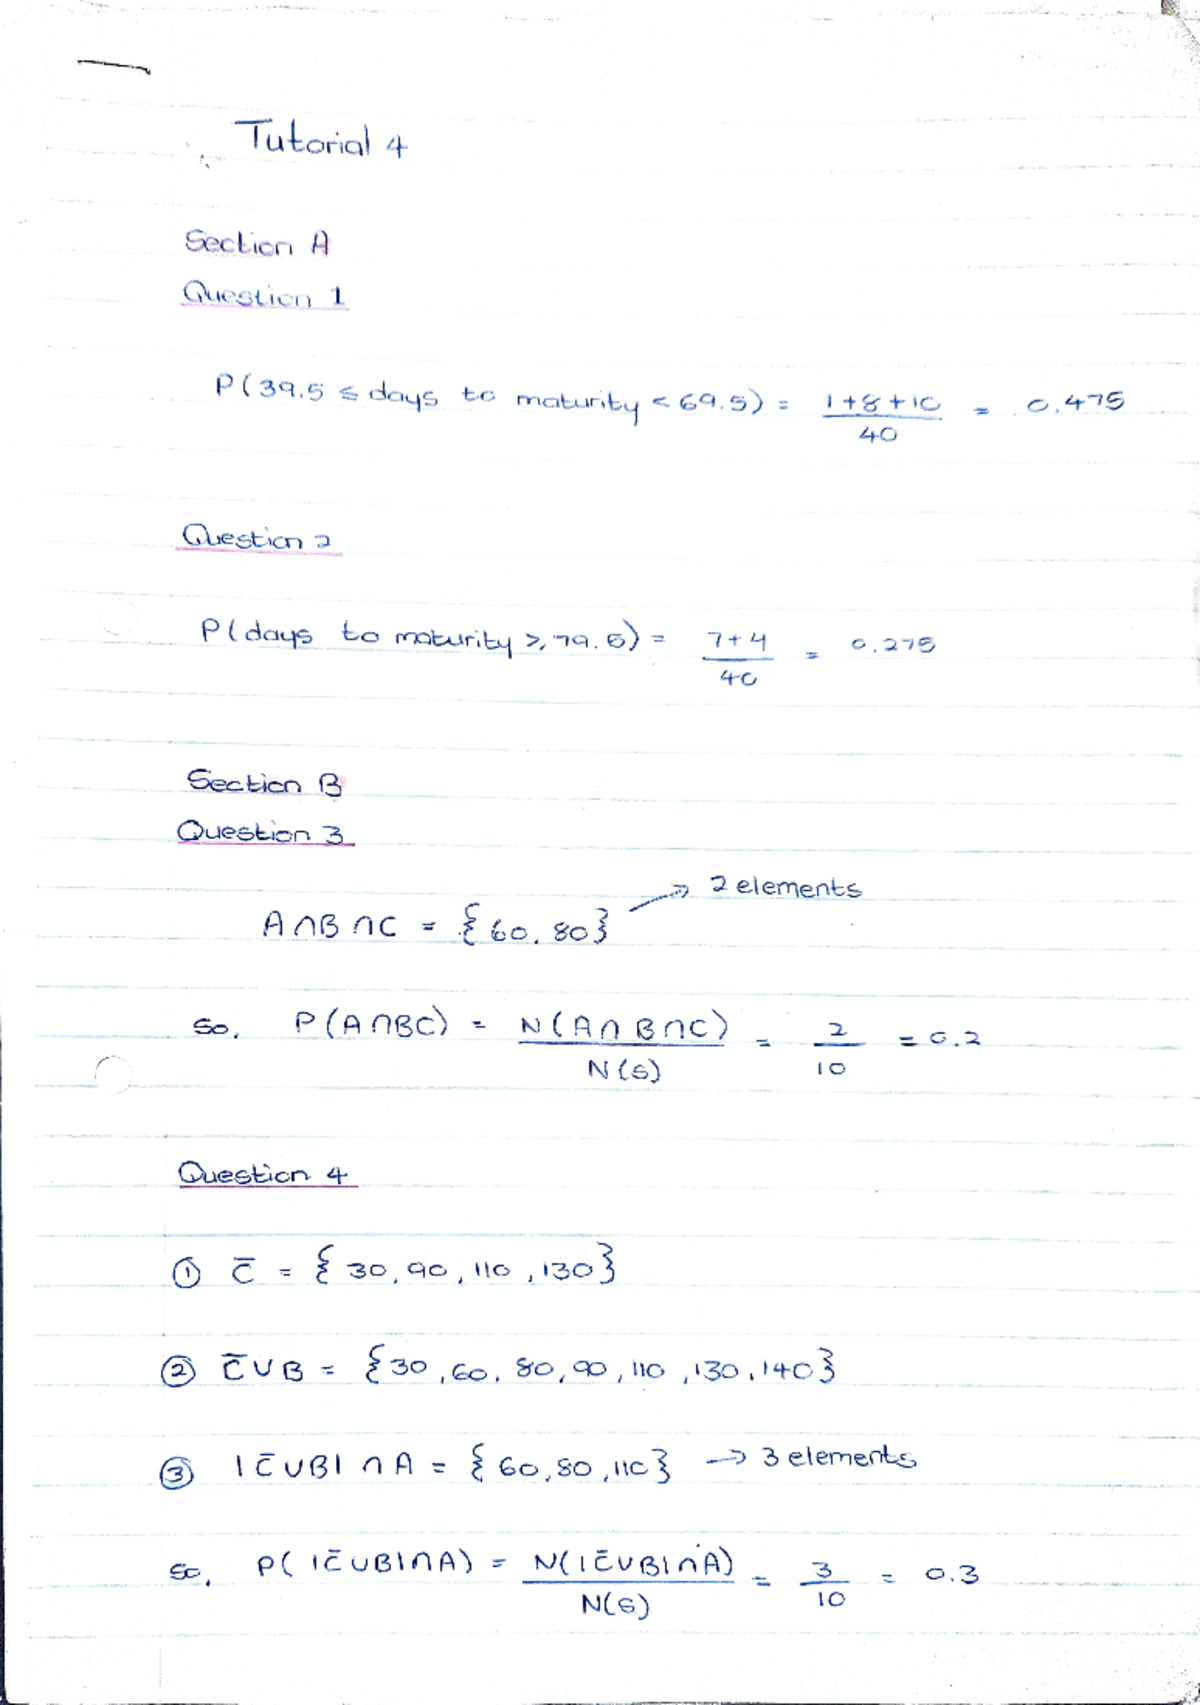 Tutorial 4
Section A
Question 1
P(39.5 ≤ days to maturity < 69.5) = (1+8+10)/40 = 0.475
Question 2
P(days to maturity ≥ 79.5) = (7+4)/40 = 0.275
Section B
Question 3
A∩B∩C = {60, 80} → 2 elements
So, P(A∩BC) = N(A∩B∩C)/N(S) = 2/10 = 0.2
Question 4
① C̄ = {30, 90, 110, 130}
② C̄∪B = {30, 60, 80, 90, 110, 130, 140}
③ |C̄∪B|∩A = {60, 80, 110} → 3 elements
So, P(|C̄∪B|∩A) = N(|C̄∪B|∩A)/N(S) = 3/10 = 0.3